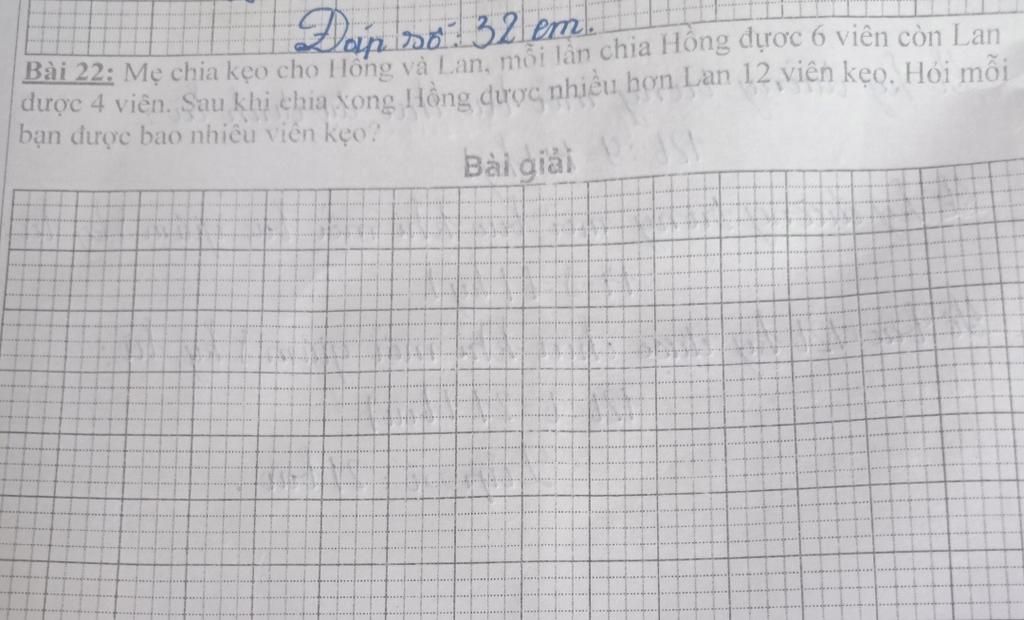 Đáp số: 32 em.
Bài 22: Mẹ chia kẹo cho Hồng và Lan, mỗi lần chia Hồng được 6 viên còn Lan
được 4 viên. Sau khi chia xong Hồng được nhiều hơn Lan 12 viên kẹo. Hỏi mỗi
bạn được bao nhiêu viên kẹo?
Bài giải